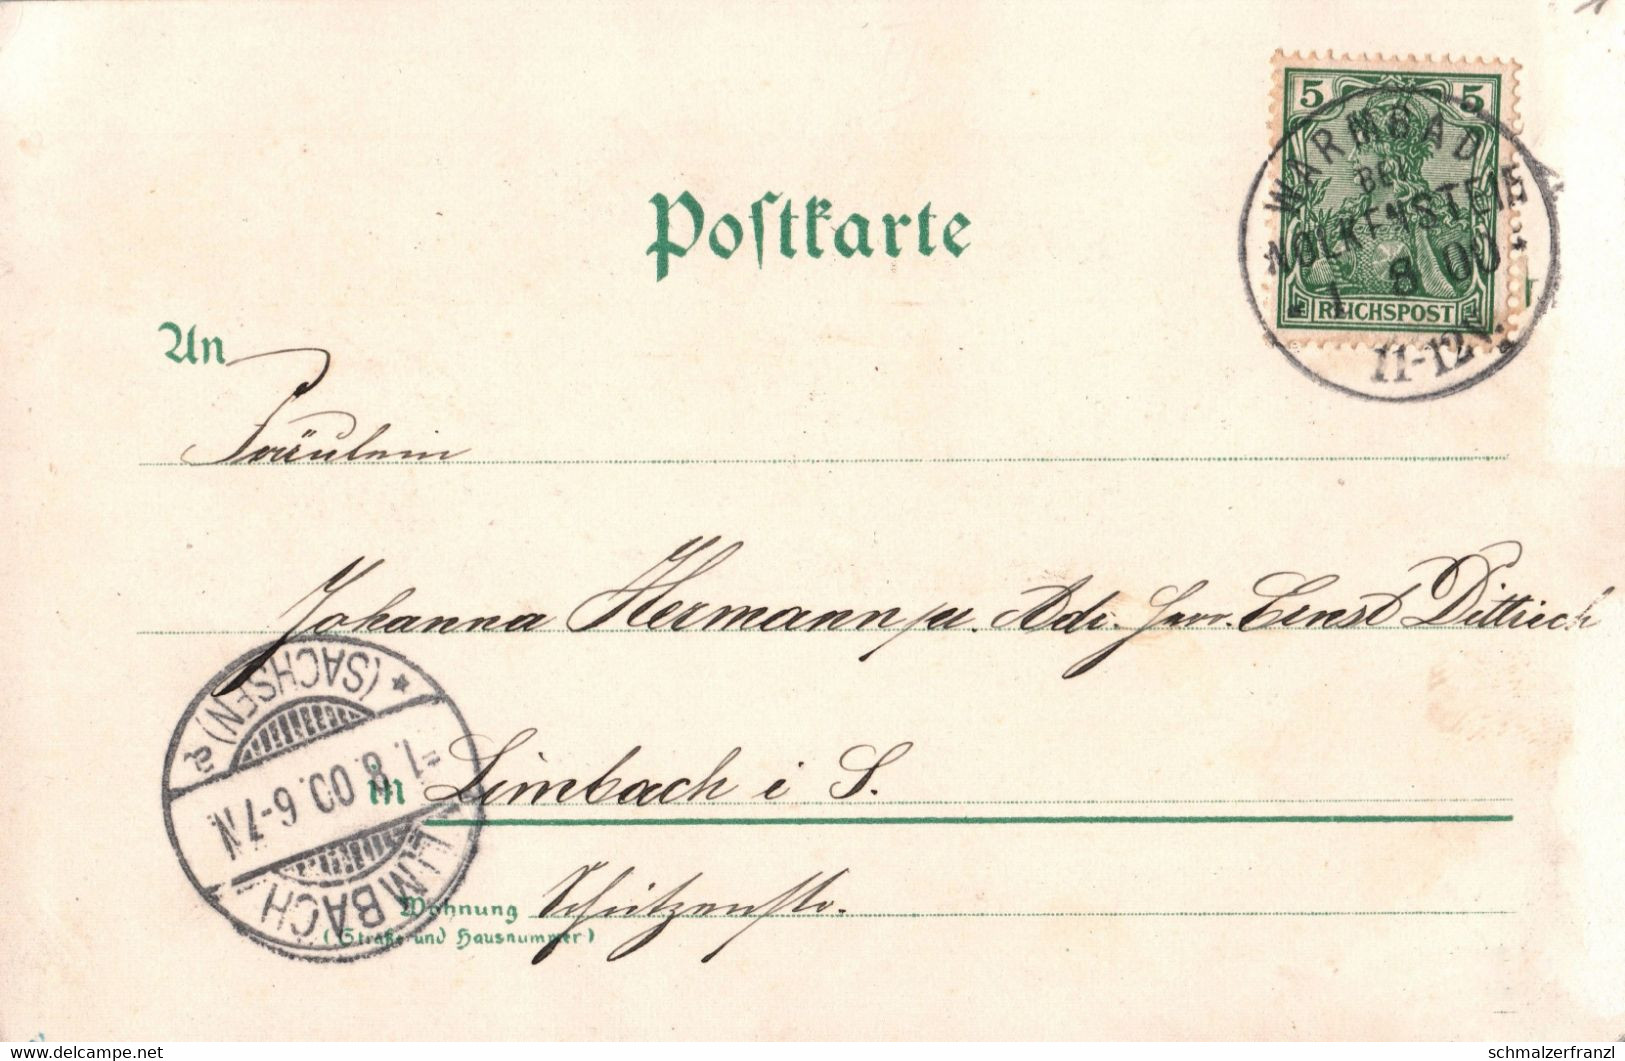 5 5
WARMBAD
BEI
WOLKENSTEIN
1 8 00
11-12V.
REICHSPOST
Postkarte
An
Fräulein
Johanna Hermann Adr. Herr Ernst Dittrich
in Limbach i S.
Wohnung Schützenstr.
(Straße und Hausnummer)
LIMBACH
(SACHSEN) a
-1.8.00.6-7N
delcampe.net
schmalzerfranzl